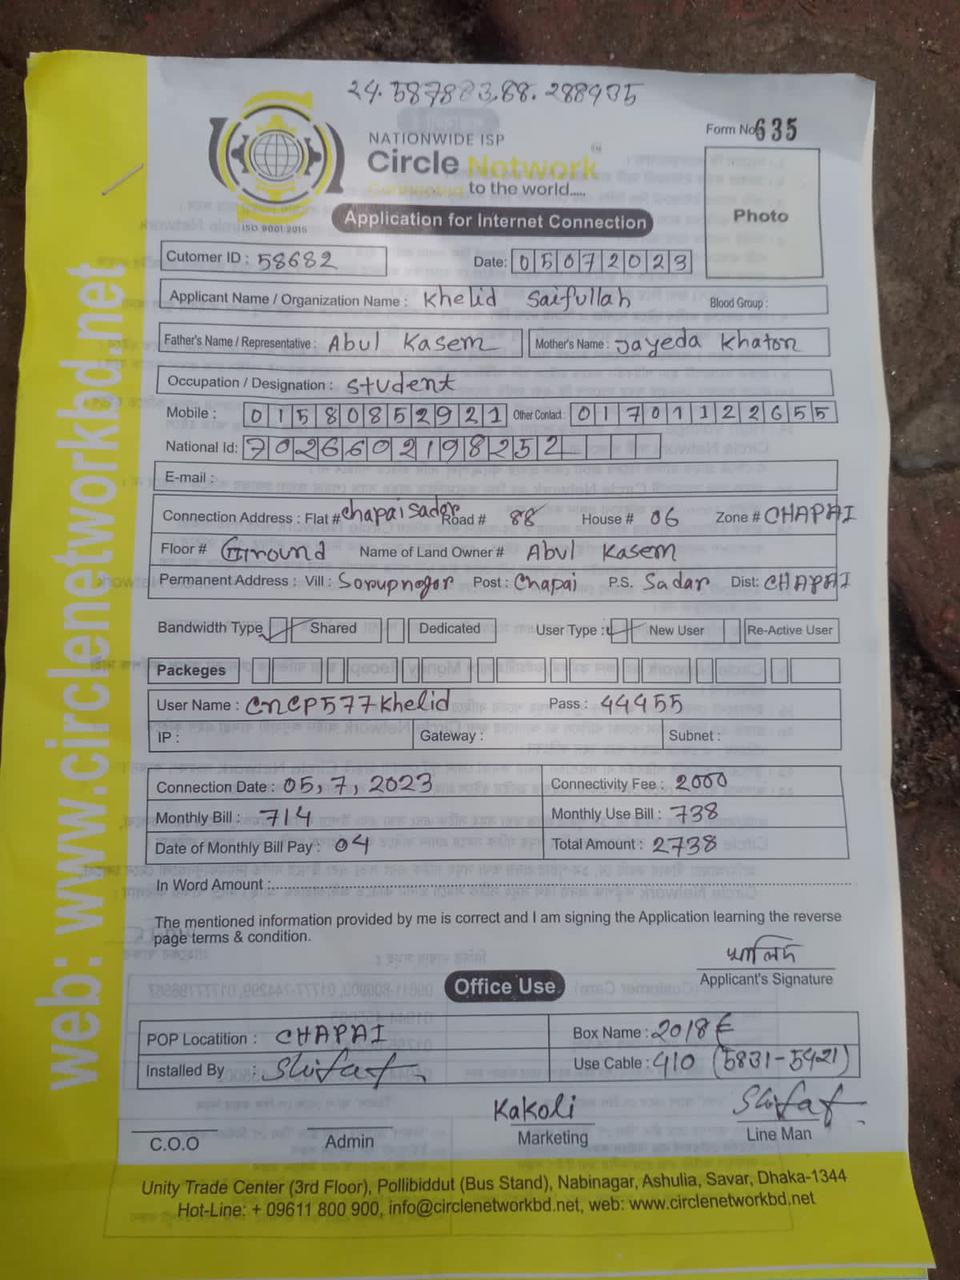 24.587883,88.288935
NATIONWIDE ISP
Form No 635
Circle Network
TM
Connecting to the world.....
ISO 9001 2015
Application for Internet Connection
Photo
Cutomer ID : 58682 Date: 05072023
Applicant Name / Organization Name : Khelid Saifullah Blood Group :
Father's Name / Representative : Abul Kasem Mother's Name : Jayeda Khaton
Occupation / Designation : Student
Mobile : 01580852921 Other Contact : 01701122655
National Id: 7026602198252
E-mail :
Connection Address : Flat # Chapai Sador Road # 88 House # 06 Zone # CHAPAI
Floor # Ground Name of Land Owner # Abul Kasem
Permanent Address : Vill : Sorupnogor Post : Chapai P.S. Sadar Dist: CHAPAI
Bandwidth Type Shared Dedicated User Type : New User Re-Active User
Packeges
User Name : CNCP577Khelid Pass : 44455
IP : Gateway : Subnet :
Connection Date : 05, 7, 2023 Connectivity Fee : 2000
Monthly Bill : 714 Monthly Use Bill : 738
Date of Monthly Bill Pay : 04 Total Amount : 2738
In Word Amount :
The mentioned information provided by me is correct and I am signing the Application learning the reverse
page terms & condition.
খালিদ
Applicant's Signature
Office Use
POP Locatition : CHAPAI Box Name : 2018E
Installed By : Shifat Use Cable : 410 (5831-5421)
Kakoli Shifat
C.O.O Admin Marketing Line Man
Unity Trade Center (3rd Floor), Pollibiddut (Bus Stand), Nabinagar, Ashulia, Savar, Dhaka-1344
Hot-Line: + 09611 800 900, info@circlenetworkbd.net, web: www.circlenetworkbd.net
web: www.circlenetworkbd.net